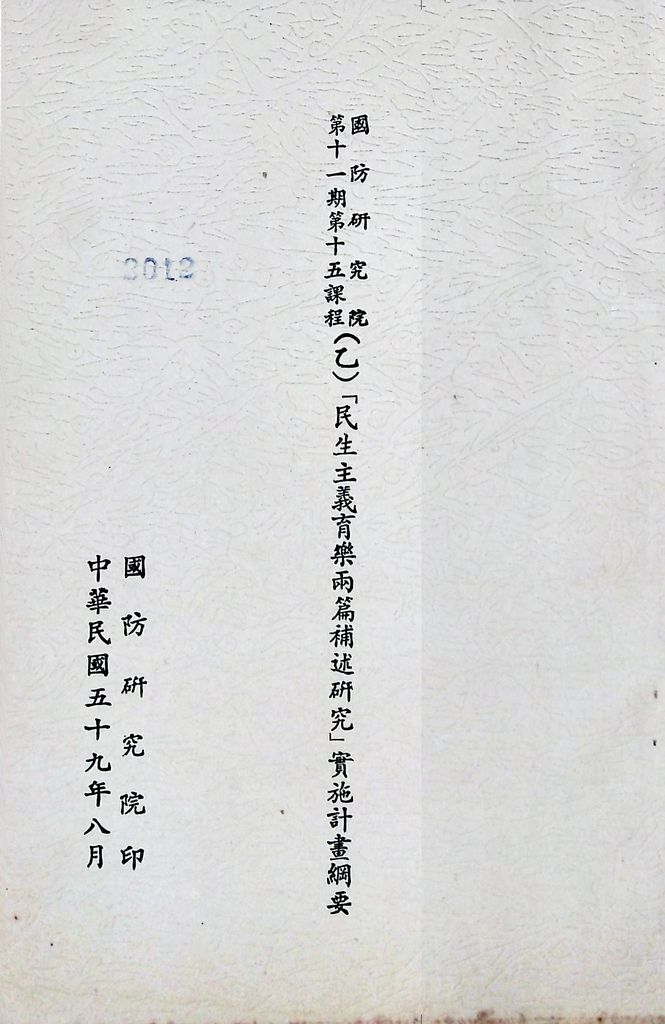 國防研究院
第十一期第十五課程
(乙)「民生主義育樂兩篇補述研究」實施計畫綱要
國防研究院印
中華民國五十九年八月
2012